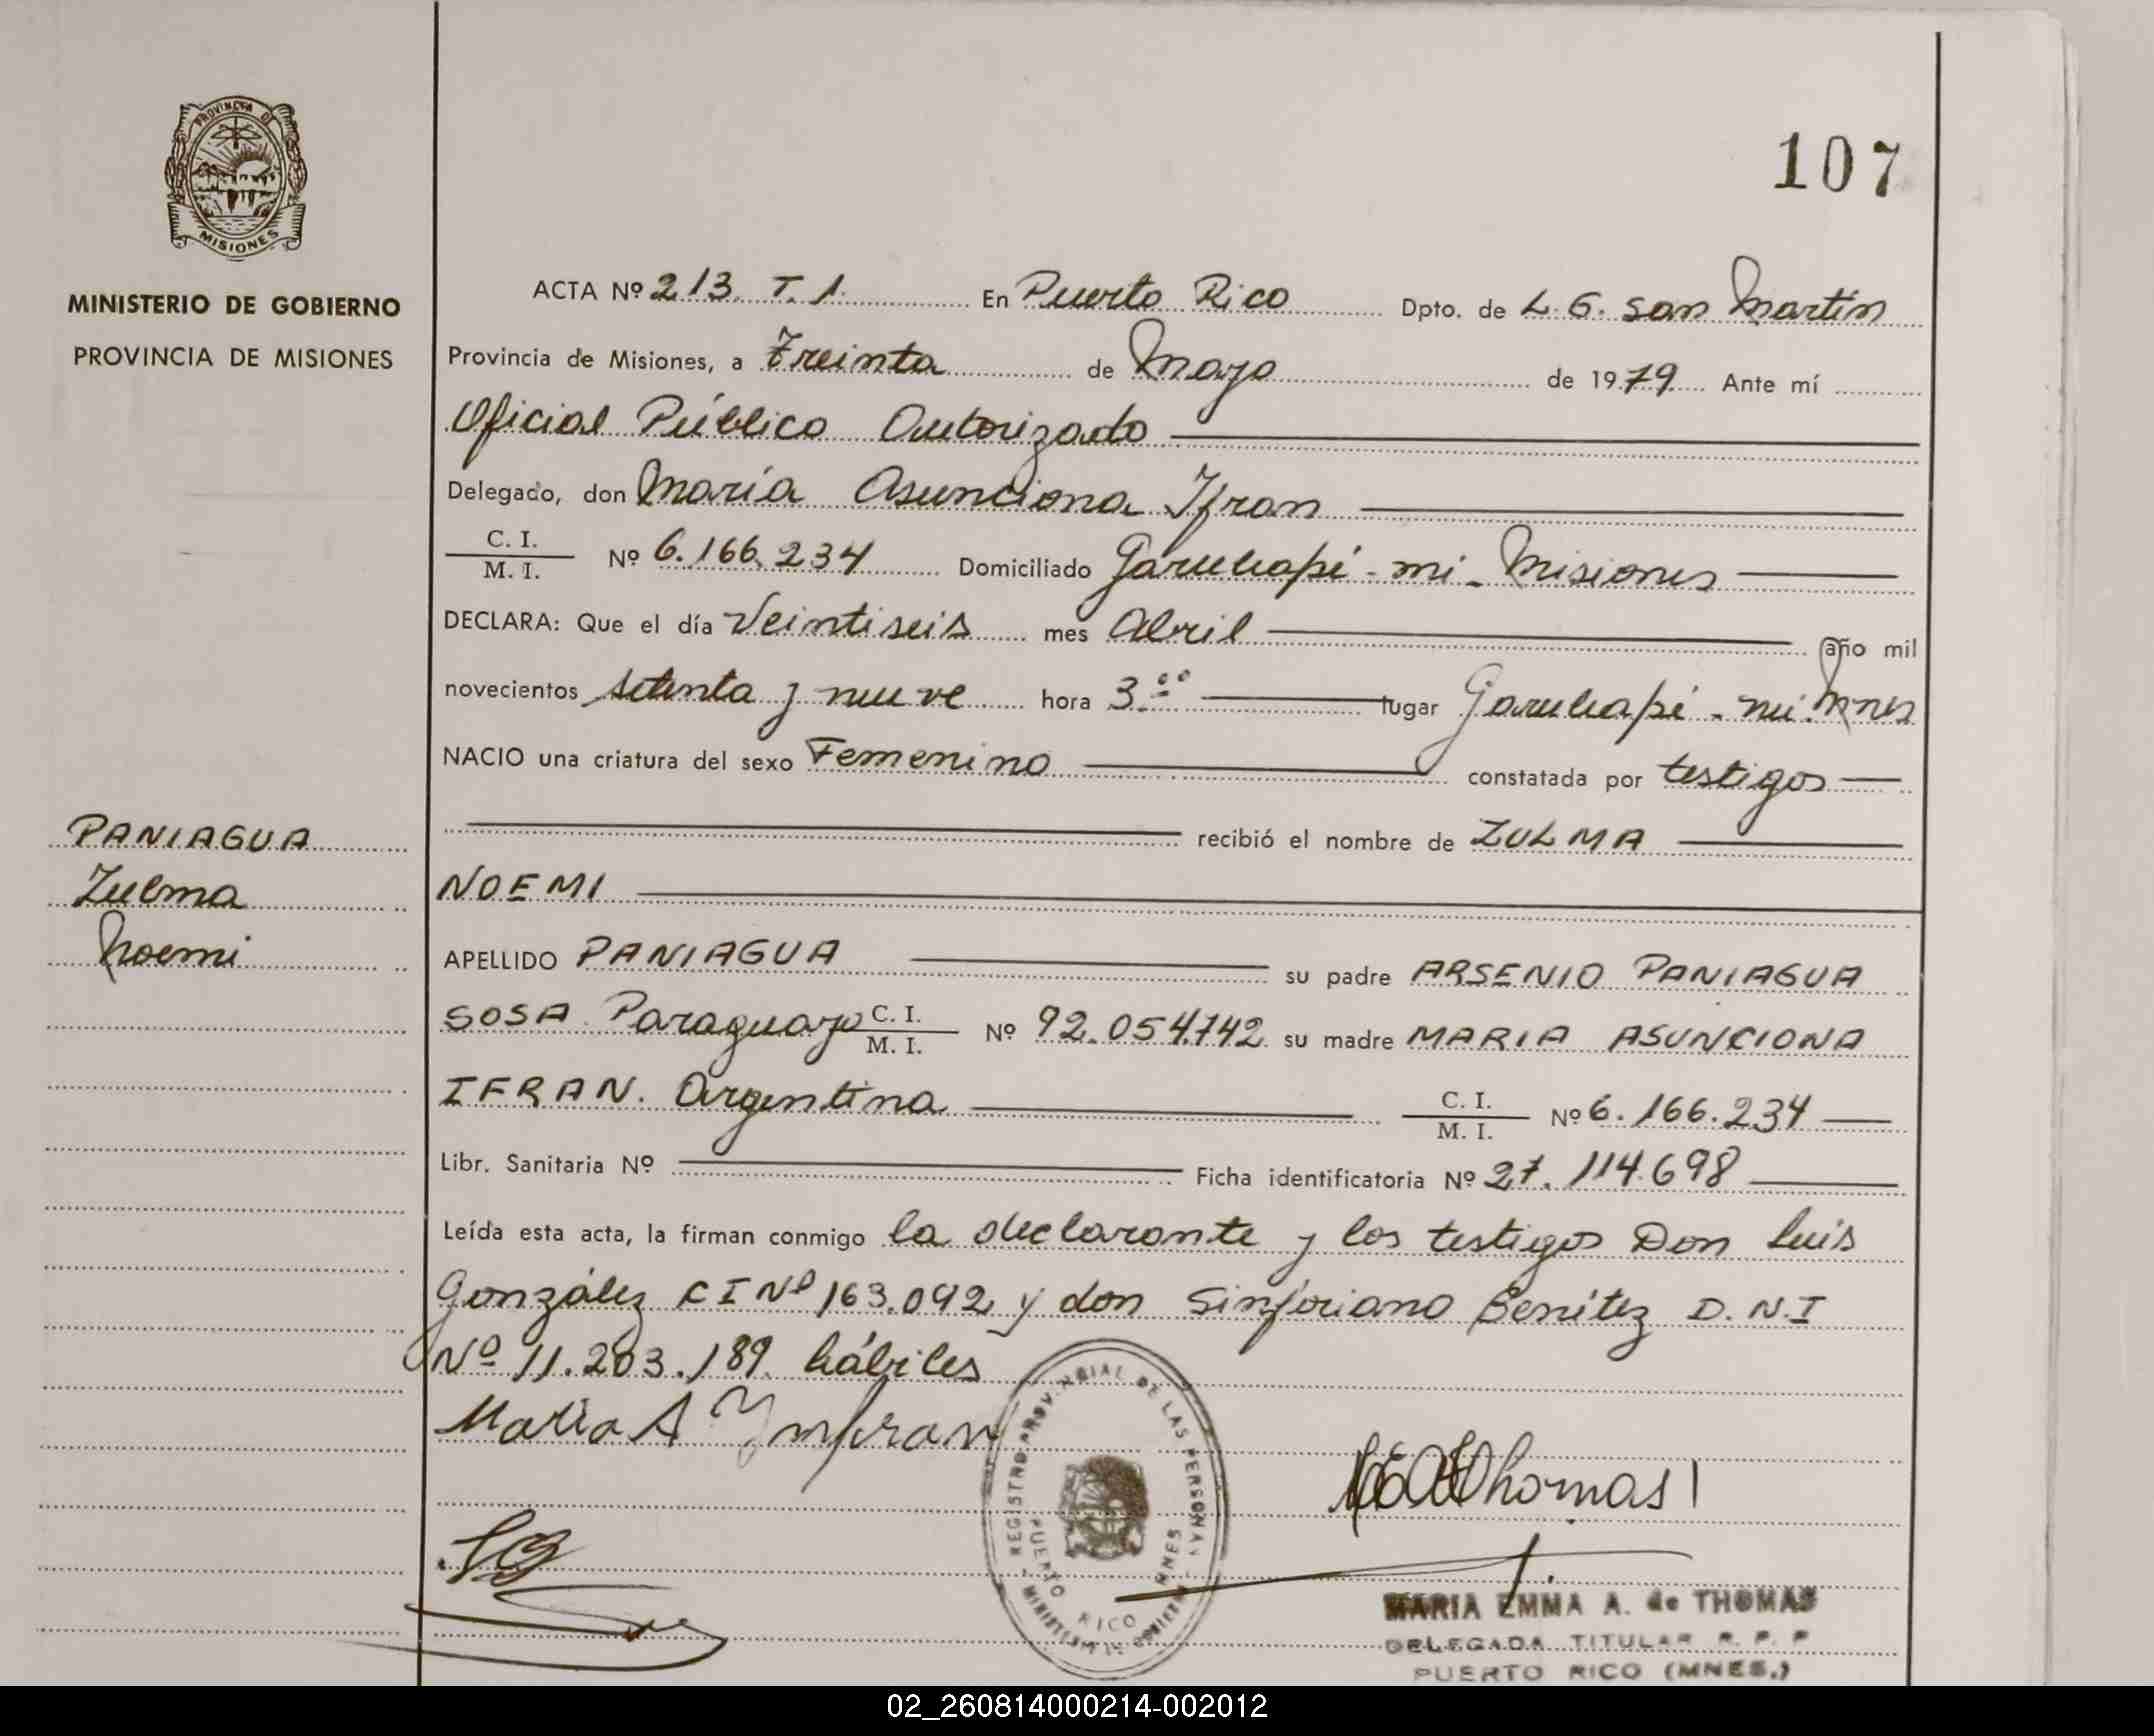 107
PROVINCIA DE
MISIONES
MINISTERIO DE GOBIERNO
PROVINCIA DE MISIONES
ACTA Nº 213. T. 1. En Puerto Rico Dpto. de L. G. San Martín
Provincia de Misiones, a Treinta de Mayo de 1979 Ante mí
Oficial Público Autorizado
Delegado, don María Asunciona Ifran
C. I.
M. I. Nº 6.166.234 Domiciliado Garuhapé - mi - Misiones
DECLARA: Que el día Veintiseis mes Abril año mil
novecientos setenta y nueve hora 3.00 lugar Garuhapé - mi. Mnes
NACIO una criatura del sexo Femenino constatada por testigos
recibió el nombre de ZULMA
NOEMI
PANIAGUA
Zulma
Noemi
APELLIDO PANIAGUA su padre ARSENIO PANIAGUA
SOSA Paraguayo C. I.
M. I. Nº 92.054.742 su madre MARIA ASUNCIONA
IFRAN. Argentina C. I.
M. I. Nº 6.166.234
Libr. Sanitaria Nº Ficha identificatoria Nº 27.114.698
Leída esta acta, la firman conmigo la declarante y los testigos Don Luis
González C I Nº 163.092 y don Sinforiano Benítez D. N. I
Nº 11.203.189 hábiles
Maria A Ynfran
REGISTRO PROVINCIAL DE LAS PERSONAS
PUERTO RICO MNES
MARIA EMMA A. de THOMAS
DELEGADA TITULAR R. P. P
PUERTO RICO (MNES.)
02_260814000214-002012